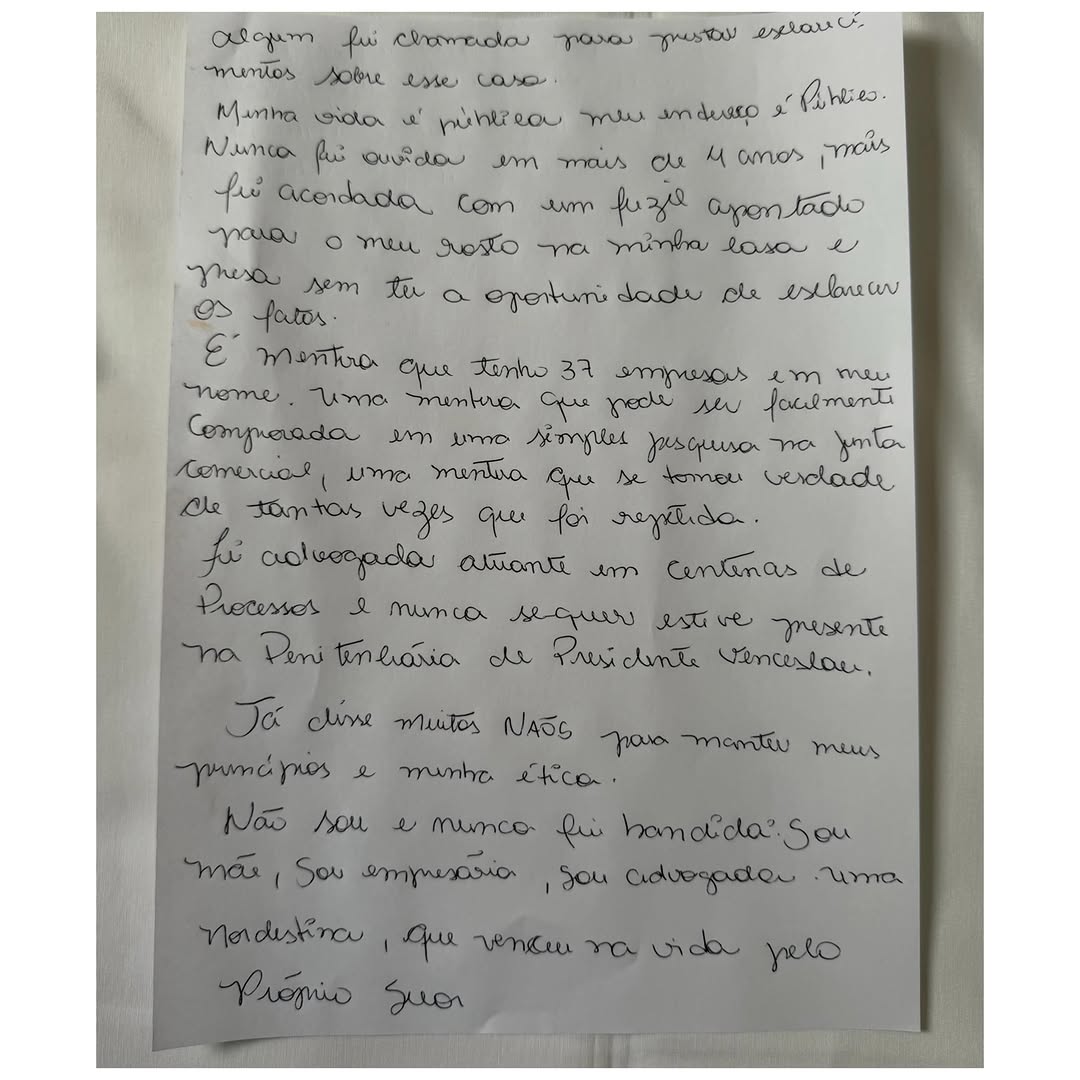 algum fui chamada para prestar esclareci-
mentos sobre esse caso.
Minha vida é pública meu endereço é Público.
Nunca fui ouvida em mais de 4 anos, mais
fui acordada com um fuzil apontado
para o meu rosto na minha casa e
presa sem ter a oportunidade de esclarecer
os fatos.
É mentira que tenho 37 empresas em meu
nome. Uma mentira que pode ser facilmente
Comprovada em uma simples pesquisa na junta
comercial, uma mentira que se tornou verdade
de tantas vezes que foi repetida.
fui advogada atuante em centenas de
Processos e nunca sequer estive presente
na Penitenciária de Presidente Venceslau.
Já disse muitos NAÕS para manter meus
princípios e minha ética.
Não sou e nunca fui bandida. Sou
mãe, Sou empresária, sou advogada. uma
nordestina, que venceu na vida pelo
Próprio Suor